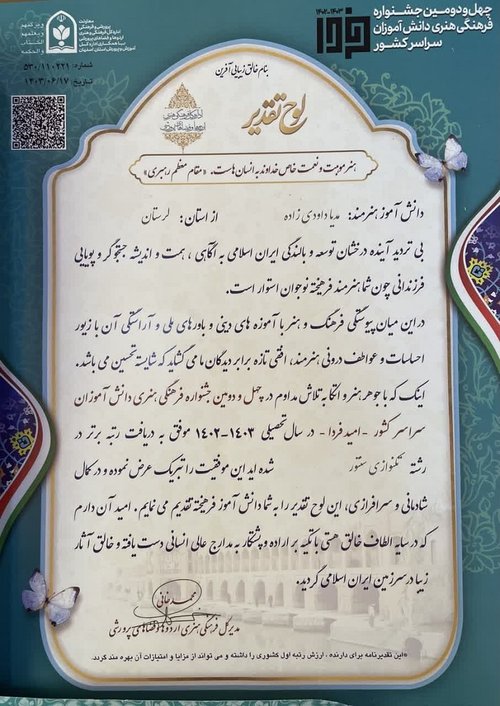 چهل و دومین جشنواره
فرهنگی هنری دانش آموزان
سراسر کشور
۱۴۰۲-۱۴۰۳
فردا
معاونت
پرورشی و فرهنگی
اداره کل فرهنگی و هنری
اردوها و فضاهای پرورشی
با همکاری اداره کل
آموزش و پرورش استان اصفهان
شماره: ۵۳۰/۱۱۰۲۲۱
تاریخ: ۱۴۰۳/۰۶/۱۷
بنام خالق زیبایی آفرین
لوح تقدیر
هنر موهبت و نعمت خاص خداوند به انسان هاست. «مقام معظم رهبری»
دانش آموز هنرمند: مدیا داودی زاده از استان: لرستان
بی تردید آینده درخشان توسعه و بالندگی ایران اسلامی به آگاهی، همت و اندیشه جستجوگر و پویایی
فرزندانی چون شما هنرمند فرهیخته نوجوان استوار است.
در این میان پیوستگی فرهنگ و هنر با آموزه های دینی و باورهای ملی و آراستگی آن با زیور
احساسات و عواطف درونی هنرمند، افقی تازه برابر دیدگان ما می گشاید که شایسته تحسین می باشد.
اینک که با جوهر هنر و اتکا به تلاش مداوم در چهل و دومین جشنواره فرهنگی هنری دانش آموزان
سراسر کشور - امید فردا - در سال تحصیلی ۱۴۰۳-۱۴۰۲ موفق به دریافت رتبه برتر در
رشته تکنوازی سنتور شده اید این موفقیت را تبریک عرض نموده و در کمال
شادمانی و سرافرازی، این لوح تقدیر را به شما دانش آموز فرهیخته تقدیم می نمایم. امید آن دارم
که در سایه الطاف خالق هستی با تکیه بر اراده و پشتکار به مدارج عالی انسانی دست یافته و خالق آثار
زیبا در سرزمین ایران اسلامی گردید.
محمد خانی
مدیر کل فرهنگی هنری اردوها و فضاهای پرورشی
«این تقدیرنامه برای دارنده، ارزش رتبه اول کشوری را داشته و می تواند از مزایا و امتیازات آن بهره مند گردد.»